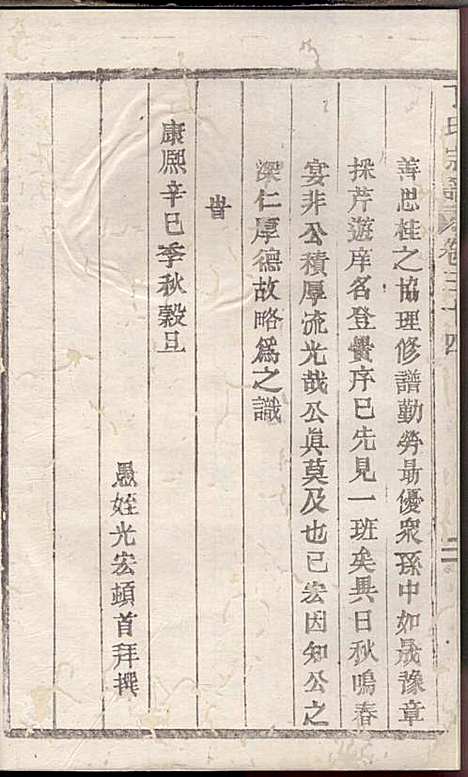 丁氏宗譜卷三十四 二
善思桂之協理修譜勤勞最優衆孫中如晟豫章
採芹遊庠名登黌序已先見一班矣異日秋鳴春
宴非公積厚流光哉公眞莫及也已宏因知公之
深仁厚德故略爲之識
旹
康熙辛巳季秋穀旦
愚姪光宏頓首拜撰